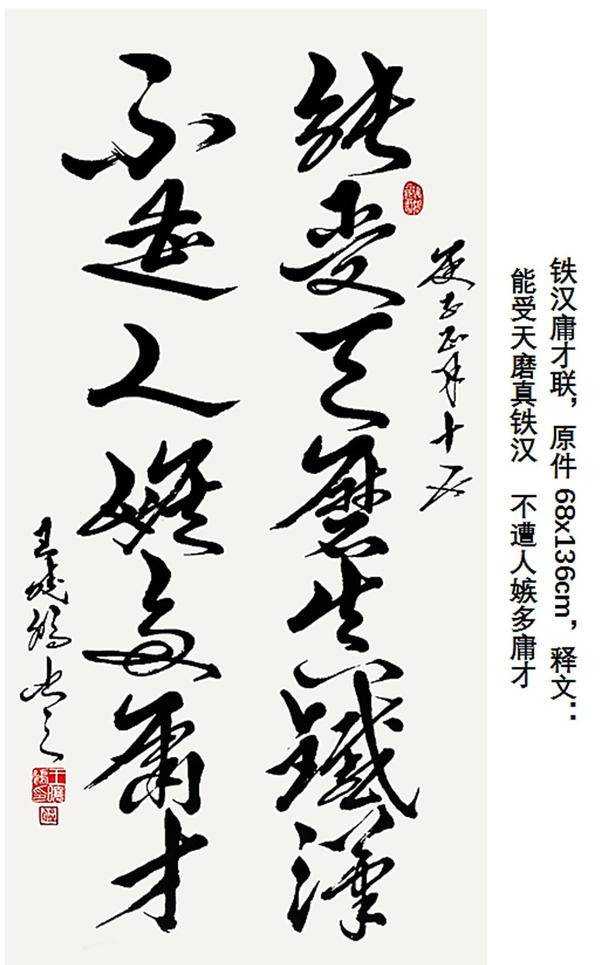 铁汉庸才联，原件 68x136cm，释文：
能受天磨真铁汉　不遭人嫉多庸才
能受天磨真鐵漢
不遭人嫉多庸才